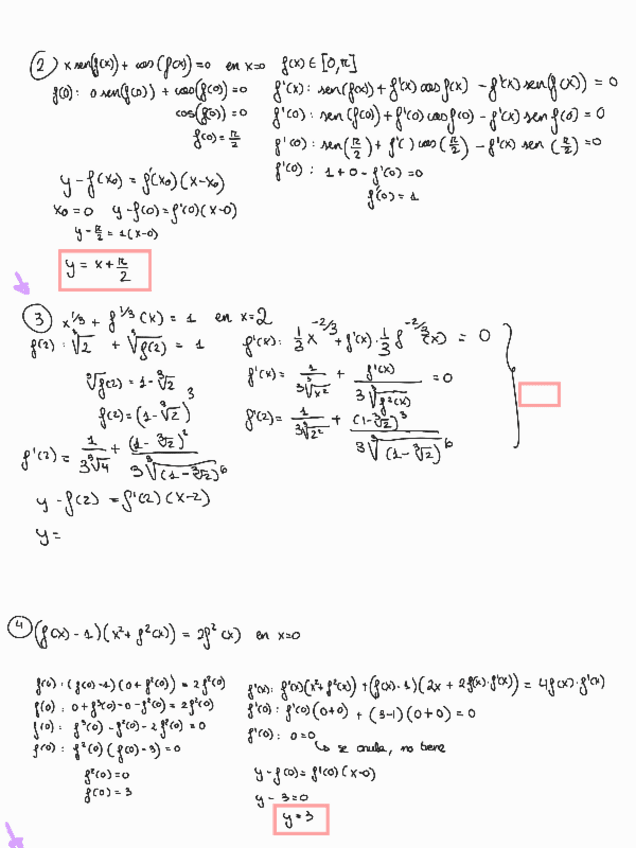 2 x sen(f(x)) + cos(f(x)) = 0 en x=0 f(x) ∈ [0, π]
f(0): 0 sen(f(0)) + cos(f(0)) = 0
cos(f(0)) = 0
f(0) = π/2
f'(x): sen(f(x)) + f'(x) cos f(x) - f'(x) sen(f(x)) = 0
f'(0): sen(f(0)) + f'(0) cos f(0) - f'(x) sen f(0) = 0
f'(0): sen(π/2) + f'( ) cos(π/2) - f'(x) sen(π/2) = 0
f'(0): 1 + 0 - f'(0) = 0
f'(0) = 1
y - f(x0) = f'(x0)(x - x0)
x0 = 0 y - f(0) = f'(0)(x-0)
y - π/2 = 1(x-0)
y = x + π/2
3 x^1/3 + f^1/3(x) = 1 en x=2
f(2): ∛2 + ∛f(2) = 1
∛f(2) = 1 - ∛2
f(2) = (1 - ∛2)^3
f'(x): 1/3 x^-2/3 + f'(x) · 1/3 f^-2/3(x) = 0
f'(x) = 1/(3∛x²) + f'(x)/(3∛f²(x)) = 0
f'(2) = 1/(3∛2²) + (1-∛2)^3/(3∛(1-∛2)^6)
f'(2) = 1/(3∛4) + (1-∛2)²/(3∛(1-∛2)^6)
y - f(2) = f'(2)(x-2)
y =
4 (f(x) - 1)(x² + f²(x)) = 2f²(x) en x=0
f(0): (f(0)-1)(0 + f²(0)) = 2f²(0)
f(0): 0 + f³(0) - 0 - f²(0) = 2f²(0)
f(0): f³(0) - f²(0) - 2f²(0) = 0
f(0): f²(0)(f(0) - 3) = 0
f²(0) = 0
f(0) = 3
f'(x): f'(x)(x² + f²(x)) + (f(x) - 1)(2x + 2f(x)·f'(x)) = 4f(x)·f'(x)
f'(0): f'(0)(0+0) + (3-1)(0+0) = 0
f'(0): 0=0
↳ se anula, no tiene
y - f(0) = f'(0)(x-0)
y - 3 = 0
y = 3